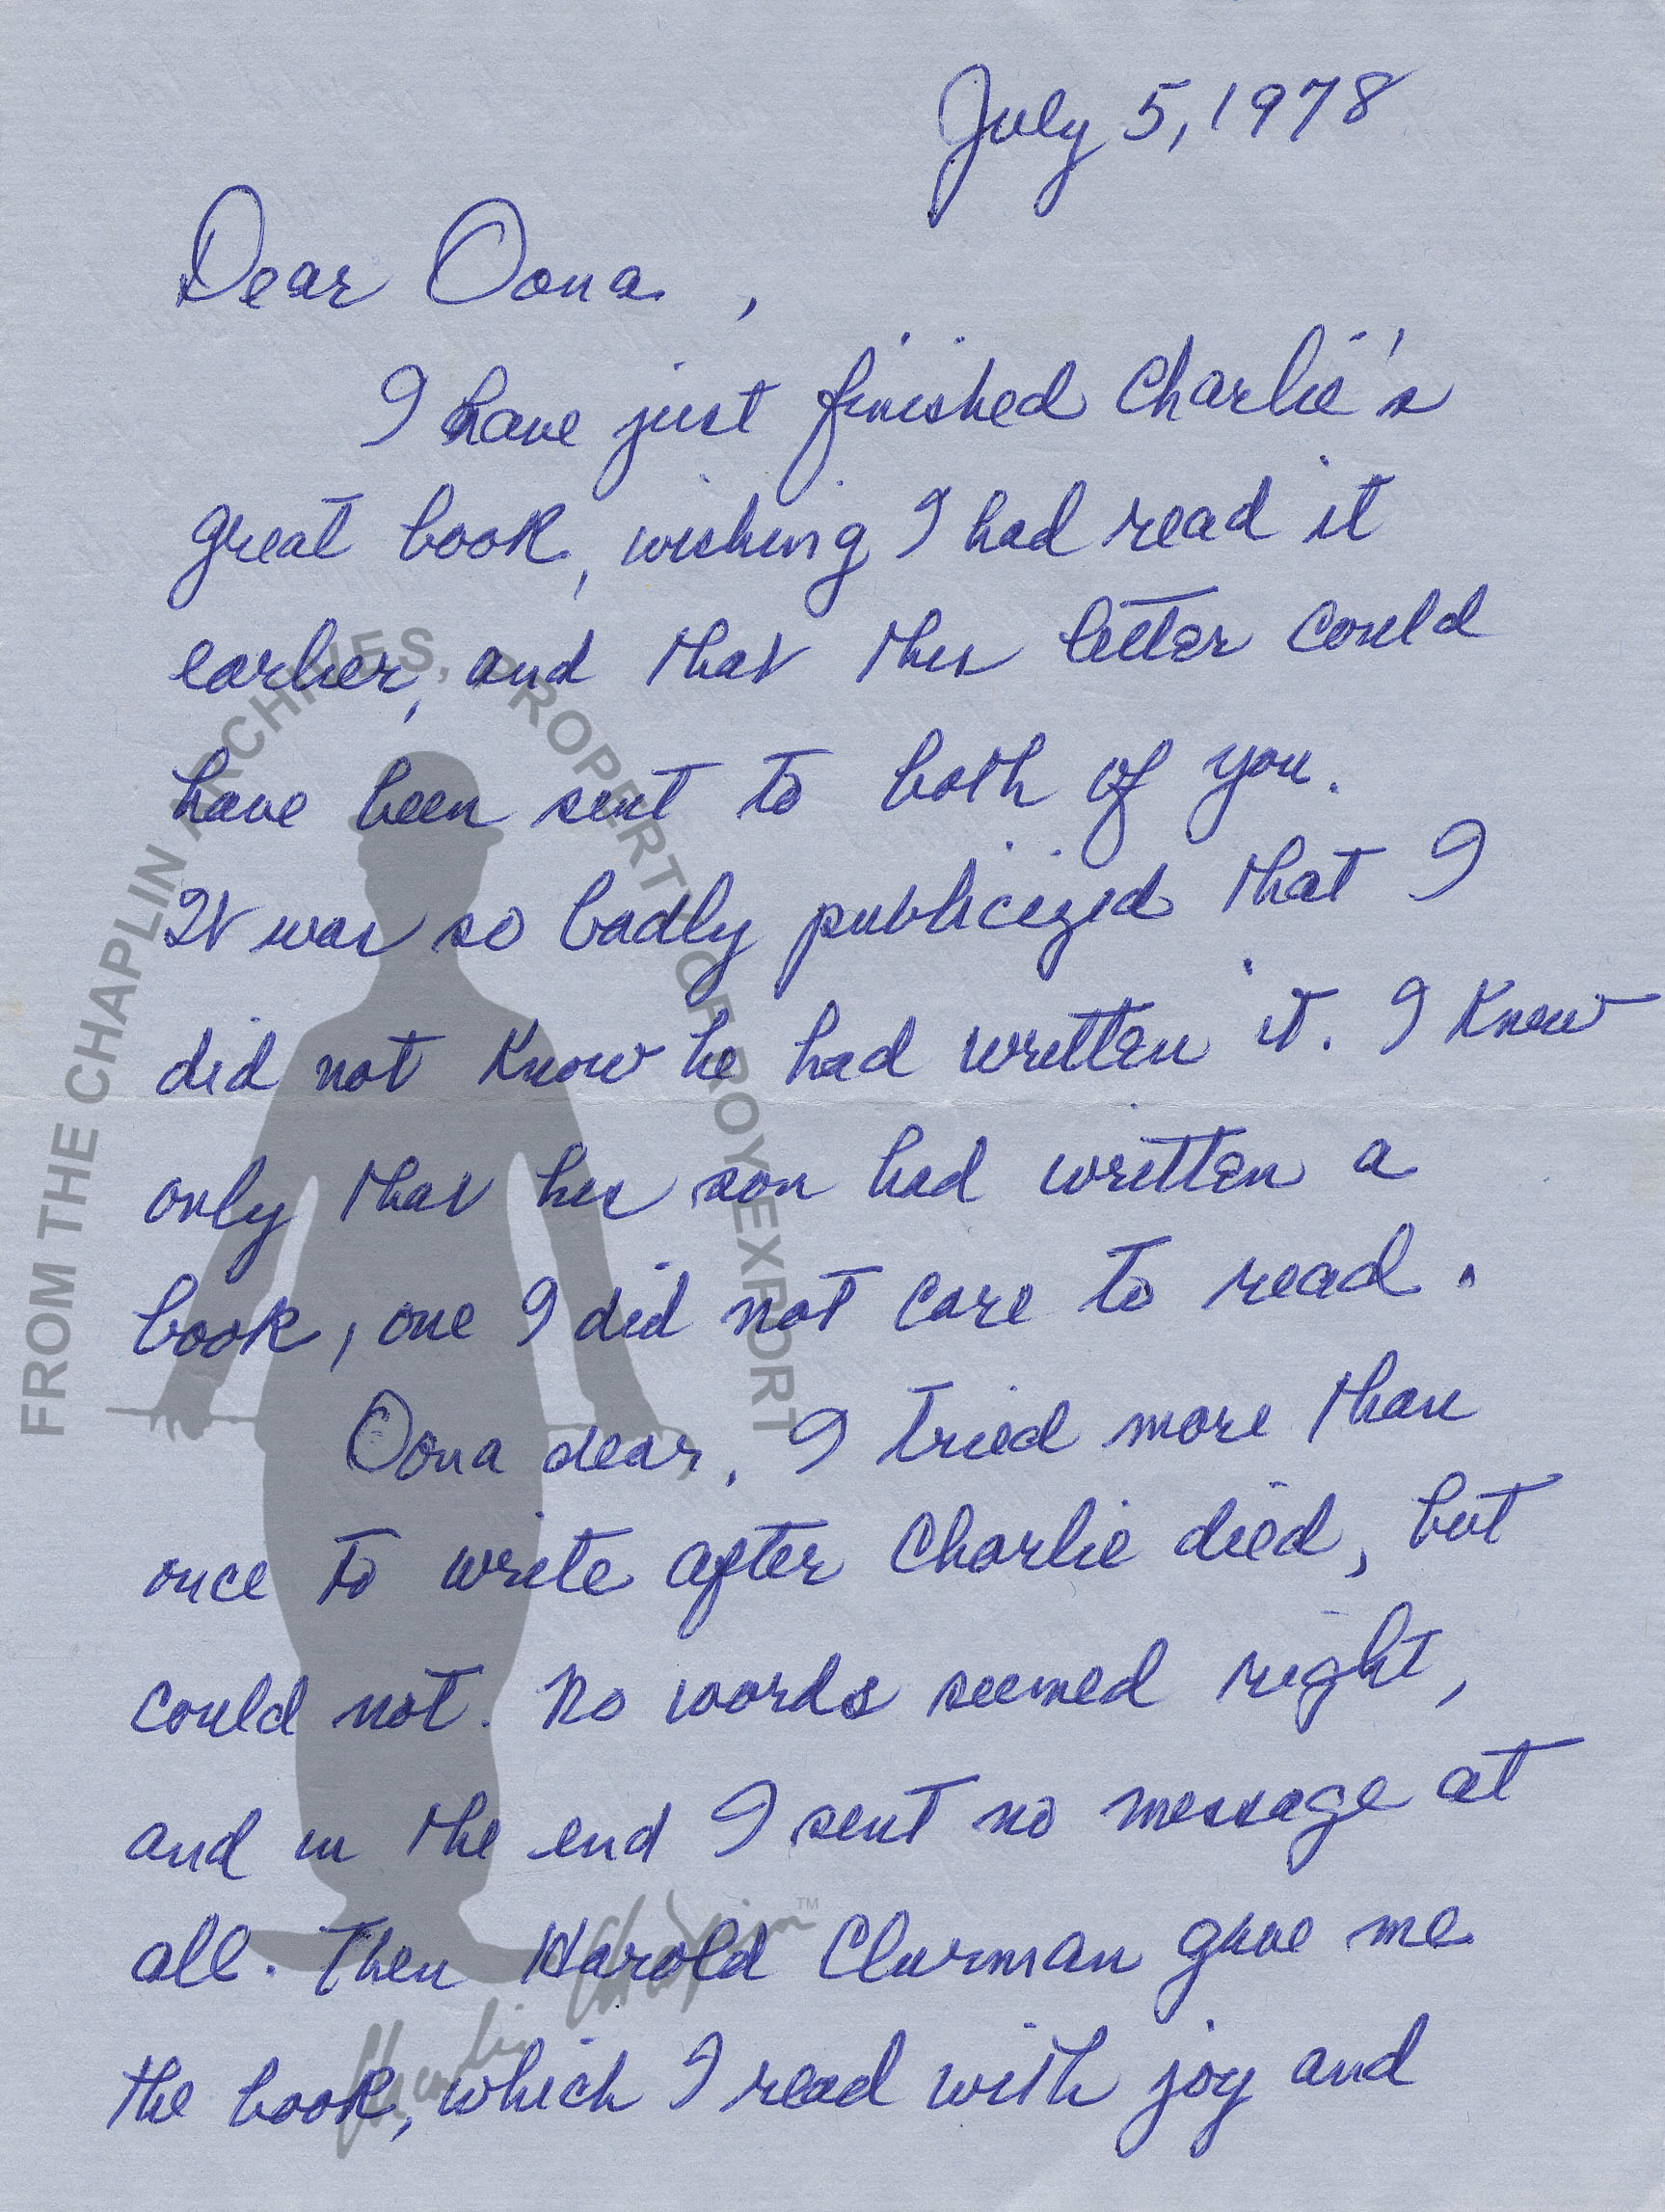 July 5, 1978
Dear Oona,
I have just finished Charlie's
great book, wishing I had read it
earlier, and that this letter could
have been sent to both of you.
It was so badly publicized that I
did not know he had written it. I knew
only that his son had written a
book, one I did not care to read.
Oona dear, I tried more than
once to write after Charlie died, but
could not. No words seemed right,
and in the end I sent no message at
all. Then Harold Clurman gave me
the book, which I read with joy and
FROM THE CHAPLIN ARCHIVES, PROPERTY OF ROY EXPORT
Charlie Chaplin™